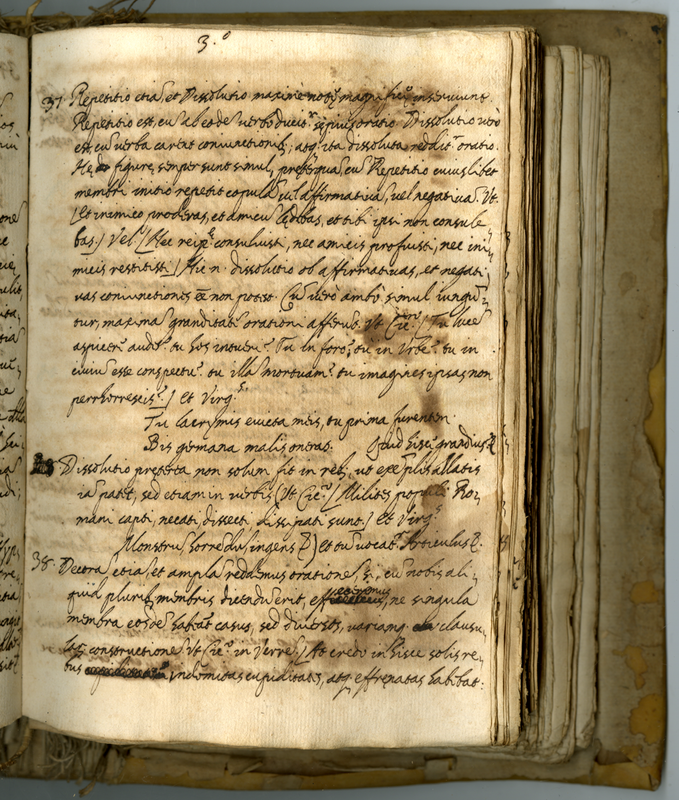 3.º
37 Repetitio etiã, et Dissolutio maximè nobis magnificè inserviunt
Repetitio est, cũ ab eodẽ verbo ducitr sępius oratio. Dissolutio verò
est, cũ verba careãt coniunctionib9, atq; ita dissoluta redditr oratio.
Hę figurę semper sunt simul, pręterquã cũ Repetitio cuiuslibet
membri initio repetit copulã vel affirmativã, vel negativã Vt.
[Et inimico proderas, et amicũ lędebas, et tibi ipsi non consule,
bas.] Vel [Nec reip.e consuluisti, nec amicis profuisti, nec ini,
micis restitisti.] Hic n. dissolutio ob affirmativas, et negati,
vas coniunctiones ẽẽ non potest. Cũ verò ambę simul iungũ,
tur, maximã granditatẽ orationi afferũt. Vt Cicr. [Tu hęc
aspicere audes? tu hos intueri? Tu in foro, tu in Vrbe, tu in
civiũ esse conspectu? tu illã mortuam, tu imagines ipsas non
perrhorrescis?] Et Virg.s
Tu lacrymis evicta meis, tu prima furentem
His germana malis oneras. Quid hisce grandius?
Dissolutio pręterea non solum fit in reb9, ut exẽplis allatis
iã patet, sed etiam in verbis (Vt Cicr. [Milites populi Ro,
mani capti, necati, diserti, dissipati sunt.] Et Virg.s
Monstrũ horrendũ, ingens) et tũc vocatr Articulus
38. Decorã etiã, et amplã reddemus orationẽ, si, cũ nobis ali,
quid plurib9 membris dicendũ erit, efficiemus, ne singula
membra eosdẽ habeãt casus, sed diversos, variamq. clausu,
lę constructionẽ Vt Cicr. in Verrẽ [At credo in hisce solis re,
bus indomitas cupiditates, atq; effrenatas habebat: